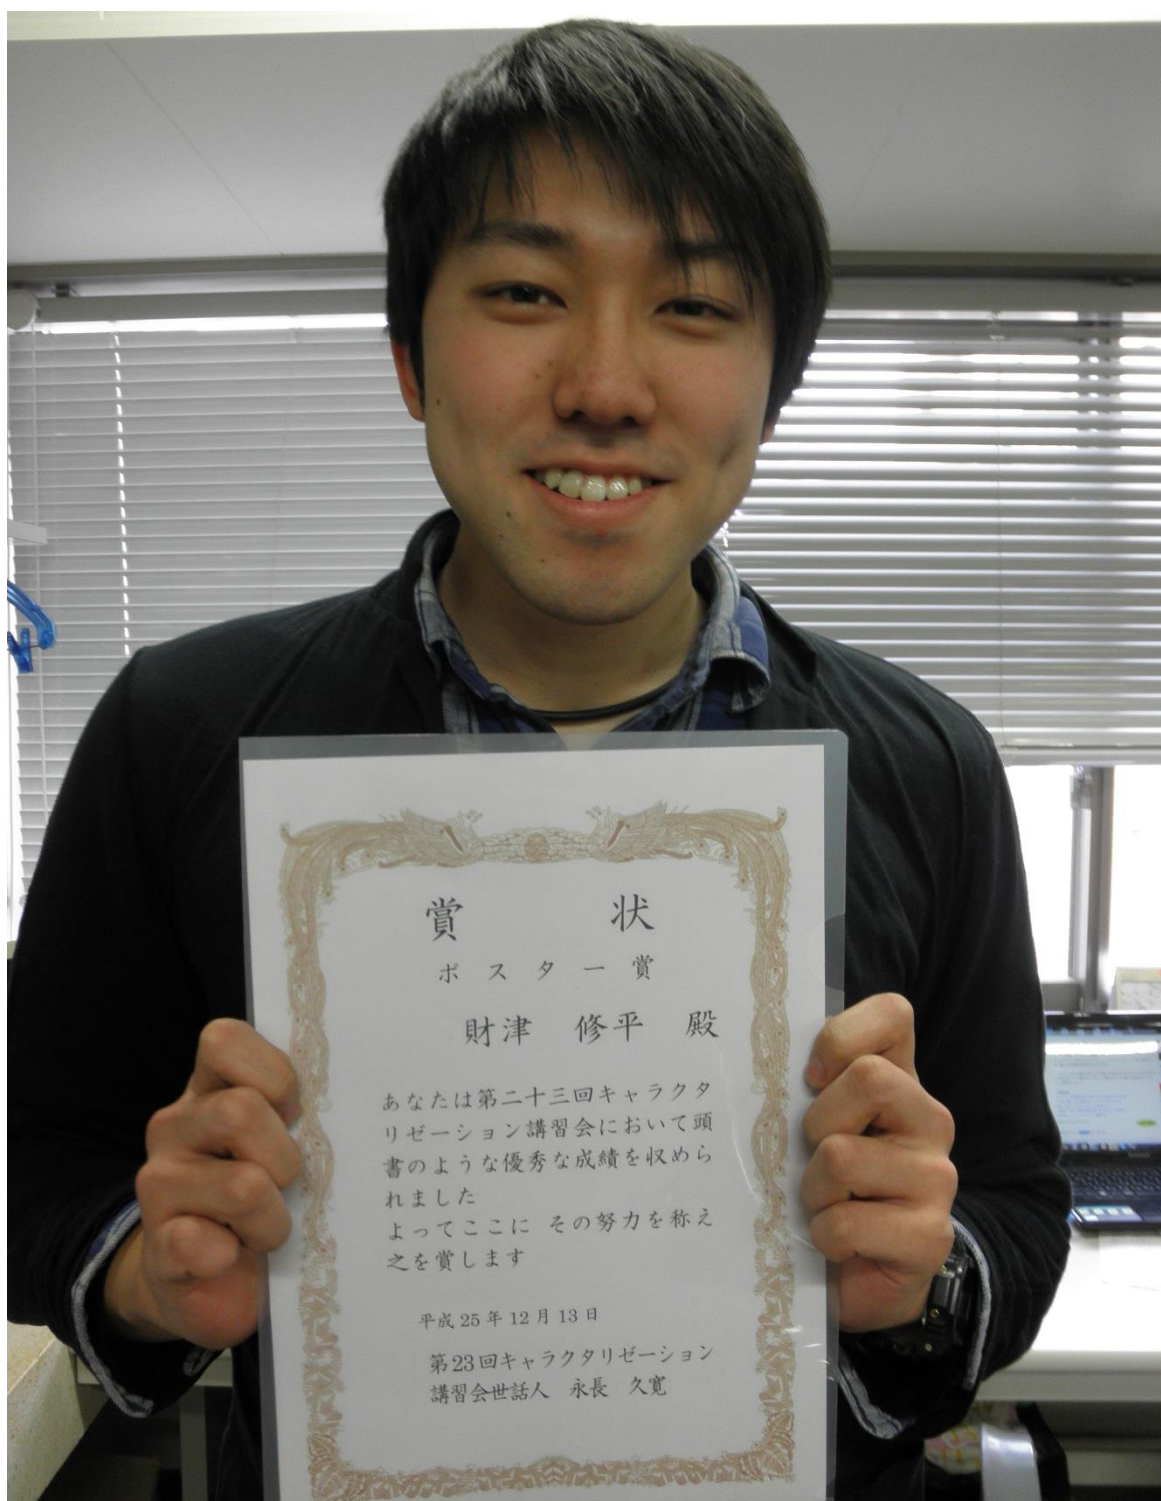 賞 状
ポスター賞
財津 修平 殿
あなたは第二十三回キャラクタ
リゼーション講習会において頭
書のような優秀な成績を収めら
れました
よってここに その努力を称え
之を賞します
平成25年12月13日
第23回キャラクタリゼーション
講習会世話人 永長 久寛